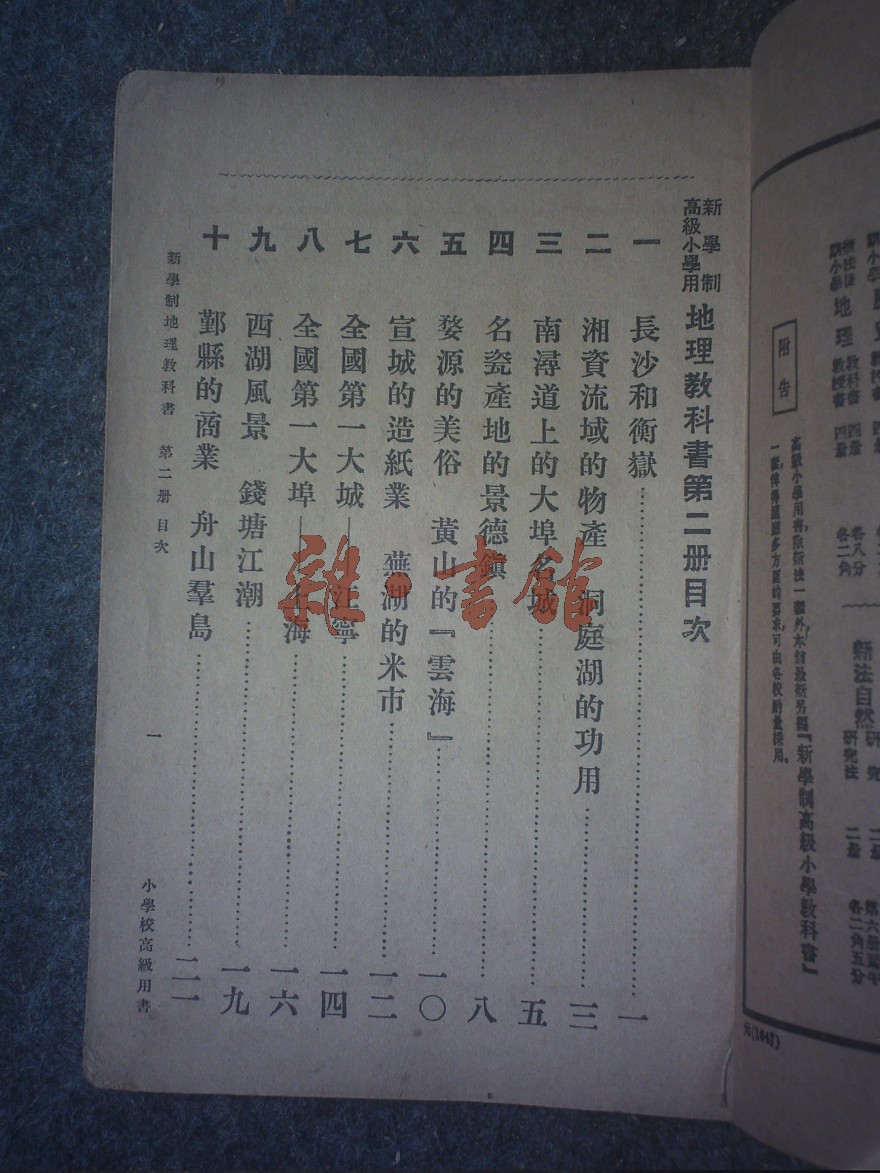 地理 教科書 四册 各八分
教授書 四册 各二角
新法自然 研究
研究法 二册 各二角五分
附告
高級小學用書除新法一種外本館最新另編『新學制高級小學教科書』
可由各校酌量採用。
新學制
高級小學用
地理教科書第二册目次
一 長沙和衡嶽……一
二 湘資流域的物產 洞庭湖的功用……三
三 南潯道上的大埠名城……五
四 名瓷產地的景德鎮……八
五 婺源的美俗 黃山的『雲海』……一〇
六 宣城的造紙業 蕪湖的米市……一二
七 全國第一大城—江寧……一四
八 全國第一大埠—上海……一六
九 西湖風景 錢塘江潮……一九
十 鄞縣的商業 舟山羣島……二一
新學制地理教科書 第二册 目次
一
小學校高級用書
雜·書館